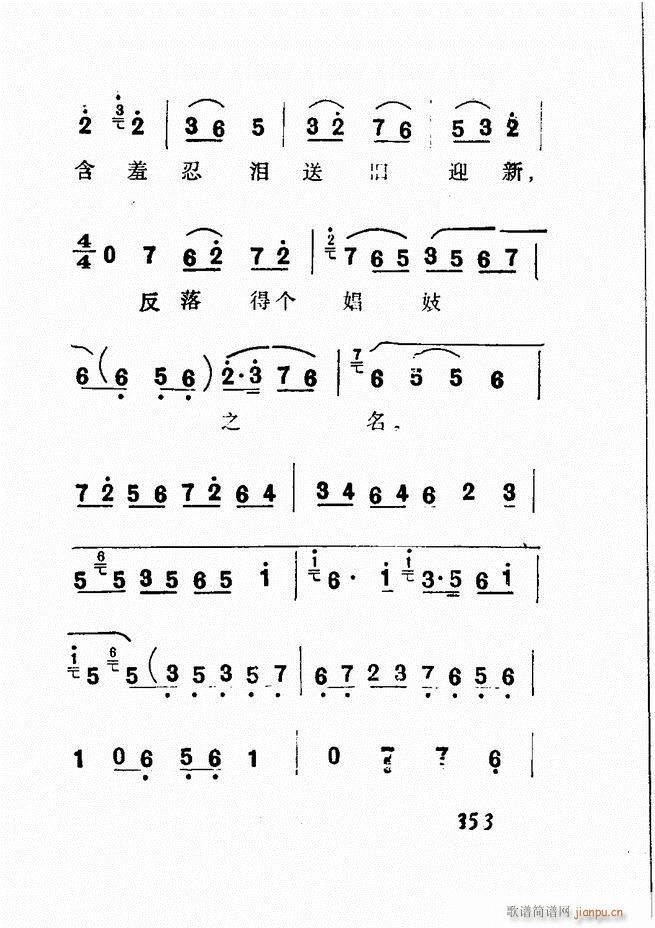 2̇ 3̇ 2̇ | 3 6 5 | 3 2̇ 7 6 | 5 3 2̇ |
含 羞 忍 泪 送 旧 迎 新,
4/4 0 7 6 2̇ 7 2̇ | 2̇ 7 6 5 3 5 6 7 |
反 落 得 个 娼 妓
6 ( 6 5 6 ) 2̇ · 3̇ 7 6 | 7 6 5 5 6 |
之 名,
7 2̇ 5 6 7 2̇ 6 4 | 3 4 6 4 6 2 3 |
5 6 5 3 5 6 5 1̇ | 1̇ 6 · 1̇ 1̇ 3 · 5 6 1̇ |
1̇ 5 6 5 ( 3 5 3 5 7 | 6 7 2 3 7 6 5 6 |
1 0 6 5 6 1 | 0 7 7 6 |
353
歌谱简谱网 jianpu.cn